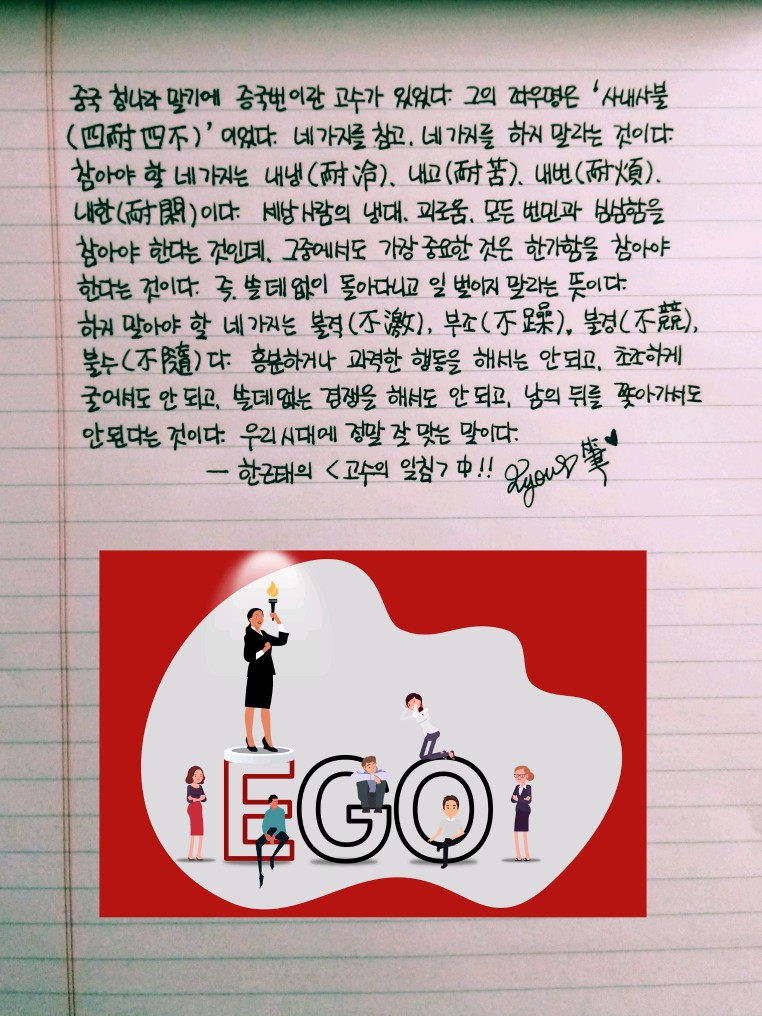 중국 청나라 말기에 증국번이란 고수가 있었다. 그의 좌우명은 '사내사불
(四耐四不)'이었다. 네 가지를 참고, 네 가지를 하지 말라는 것이다.
참아야 할 네 가지는 내냉(耐冷), 내고(耐苦), 내번(耐煩),
내한(耐閑)이다. 세상 사람의 냉대, 괴로움, 모든 번민과 심심함을
참아야 한다는 것인데, 그중에서도 가장 중요한 것은 한가함을 참아야
한다는 것이다. 즉, 쓸데없이 돌아다니고 일 벌이지 말라는 뜻이다.
하지 말아야 할 네 가지는 불격(不激), 부조(不躁), 불경(不競),
불수(不隨)다. 흥분하거나 과격한 행동을 해서는 안 되고, 초조하게
굴어서도 안 되고, 쓸데없는 경쟁을 해서도 안 되고, 남의 뒤를 쫓아가서도
안 된다는 것이다. 우리 시대에 정말 잘 맞는 말이다.
- 한근태의 <고수의 일침> 中!! 筆
EGO